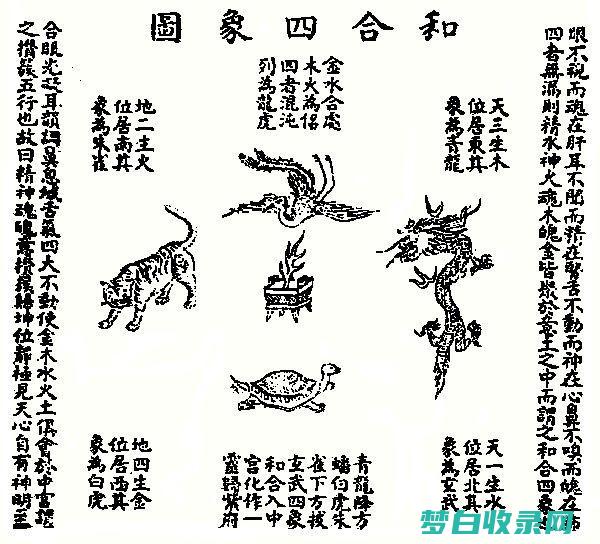 和合四象圖
眼不視而魂在肝耳不聞而精在腎舌不動而神在心鼻不嗅而魄在肺
四者無漏則精水神火魂木魄金皆聚於意土之中而謂之和合四象
天三生木
位居東其
象為青龍
金水合處
木火為侶
四者混沌
列為龍虎
地二生火
位居南其
象為朱雀
天一生水
位居北其
象為玄武
青龍降方
蟠白虎朱
雀下方拔
玄武四象
和合入中
宮化作一
靈歸紫府
地四生金
位居西其
象為白虎
合眼光凝耳韻調鼻息緘舌氣四大不動使金木水火土俱會於中宮謂
之攢簇五行也故曰精神魂魄意攢簇歸坤位靜極見天心自有神明至
梦白收录网